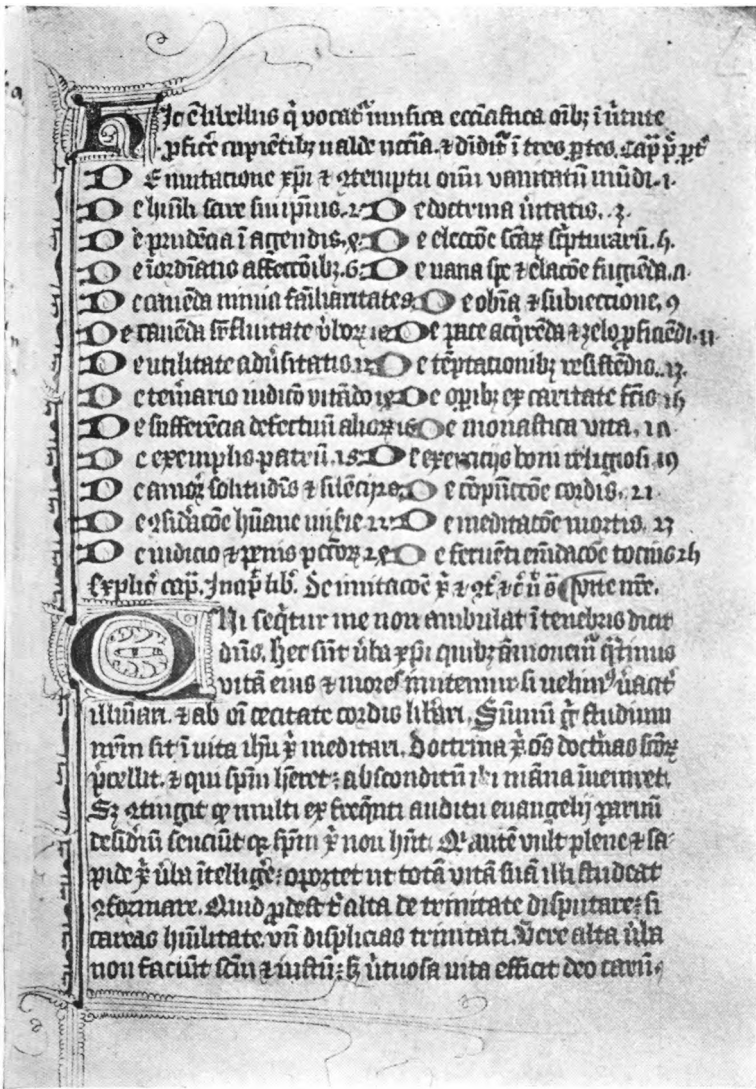 Hic ē libellus q̄ vocat᷑ musica eccl̄iastica oīb; ī v̄tute
ꝓficẽ cupiētib; ualde nēcīa. ⁊ diuīdit᷑ ī tres ꝑtes. Cap̄ p̄ ꝑt᷑
De imitacione xp̄i ⁊ ꝯtemptu oīm vanitatū mūdi. 1.
De hūili scire sui ipsius. 2. De doctrina v̄itatis. 3.
De prudēcia ī agendis. 4. De eleccōe scāꝝ sc̄pturarū. 5.
De īordīatis affeccōib;. 6. De uana spe ⁊ elacōe fugiēda. 7
De cauēda nimia familiaritate 8 De obīa ⁊ subieccione. 9
De cauēda sr̄fluitate v̄boꝝ 10 De pace acq̄rēda ⁊ zelo ꝓficiēdi. 11
De utilitate adu̾sitatis. 12 De tēptationib; resistēdis. 13.
De tem̄ario iudicō vitādo 14 De oꝑib; ex caritate fc̄is 15
De sufferēcia defectuū alioꝝ 16 De monastica vita. 17
De exemplis patrū. 18 De exercicijs boni religiosi 19
De amoꝝ solitudīs ⁊ silēcij 20 De cōpūccōe cordis. 21
De ꝯsid̄acōe hūane miẜie 22 De meditacōe mortis. 23
De iudicio ⁊ penis pctōꝝ 24 De feruēti em̄dacōe tocius 25
Explic̄ cap̄. Incip̄ lib̄. De imitacōe x̄ ⁊ ꝯt᷑ vite nr̄e.
Qui seq̄tur me non ambulat ī tenebris dicit
dn̄s. Hec sūt v̄ba xp̄i quib; āmonem᷑ q̄tinus
vitā eius ⁊ mores imitemur si uelim᷒ v̄acit᷑
illūari. ⁊ ab oī cecitate cordis lib̄ari. Sūmū ḡ studium
nr̄m sit ī uita ihū x̄ meditari. Doctrina x̄ oēs doctr̄nas sc̄oꝝ
p̄cellit. ⁊ qui spm̄ hēret: absconditū ibi māna īueniret.
Sꝫ ꝯtingit qꝫ multi ex freq̄nti auditu euangelij paruū
desid̄iū senciūt qꝫ spm̄ x̄ non hn̄t. Qi autē vult plene ⁊ sa-
pide x̄ v̄ba ītellige̾: oportet ut totā vitā suā illi studeat
ꝯformare. Quid ꝓdest t᷑ alta de trinitate disputare: si
careas hūilitate. vn̄ displicias trinitati. Vere alta v̄ba
non faciūt sc̄m ⁊ iustū: sꝫ v̄tuosa uita efficit deo carū.